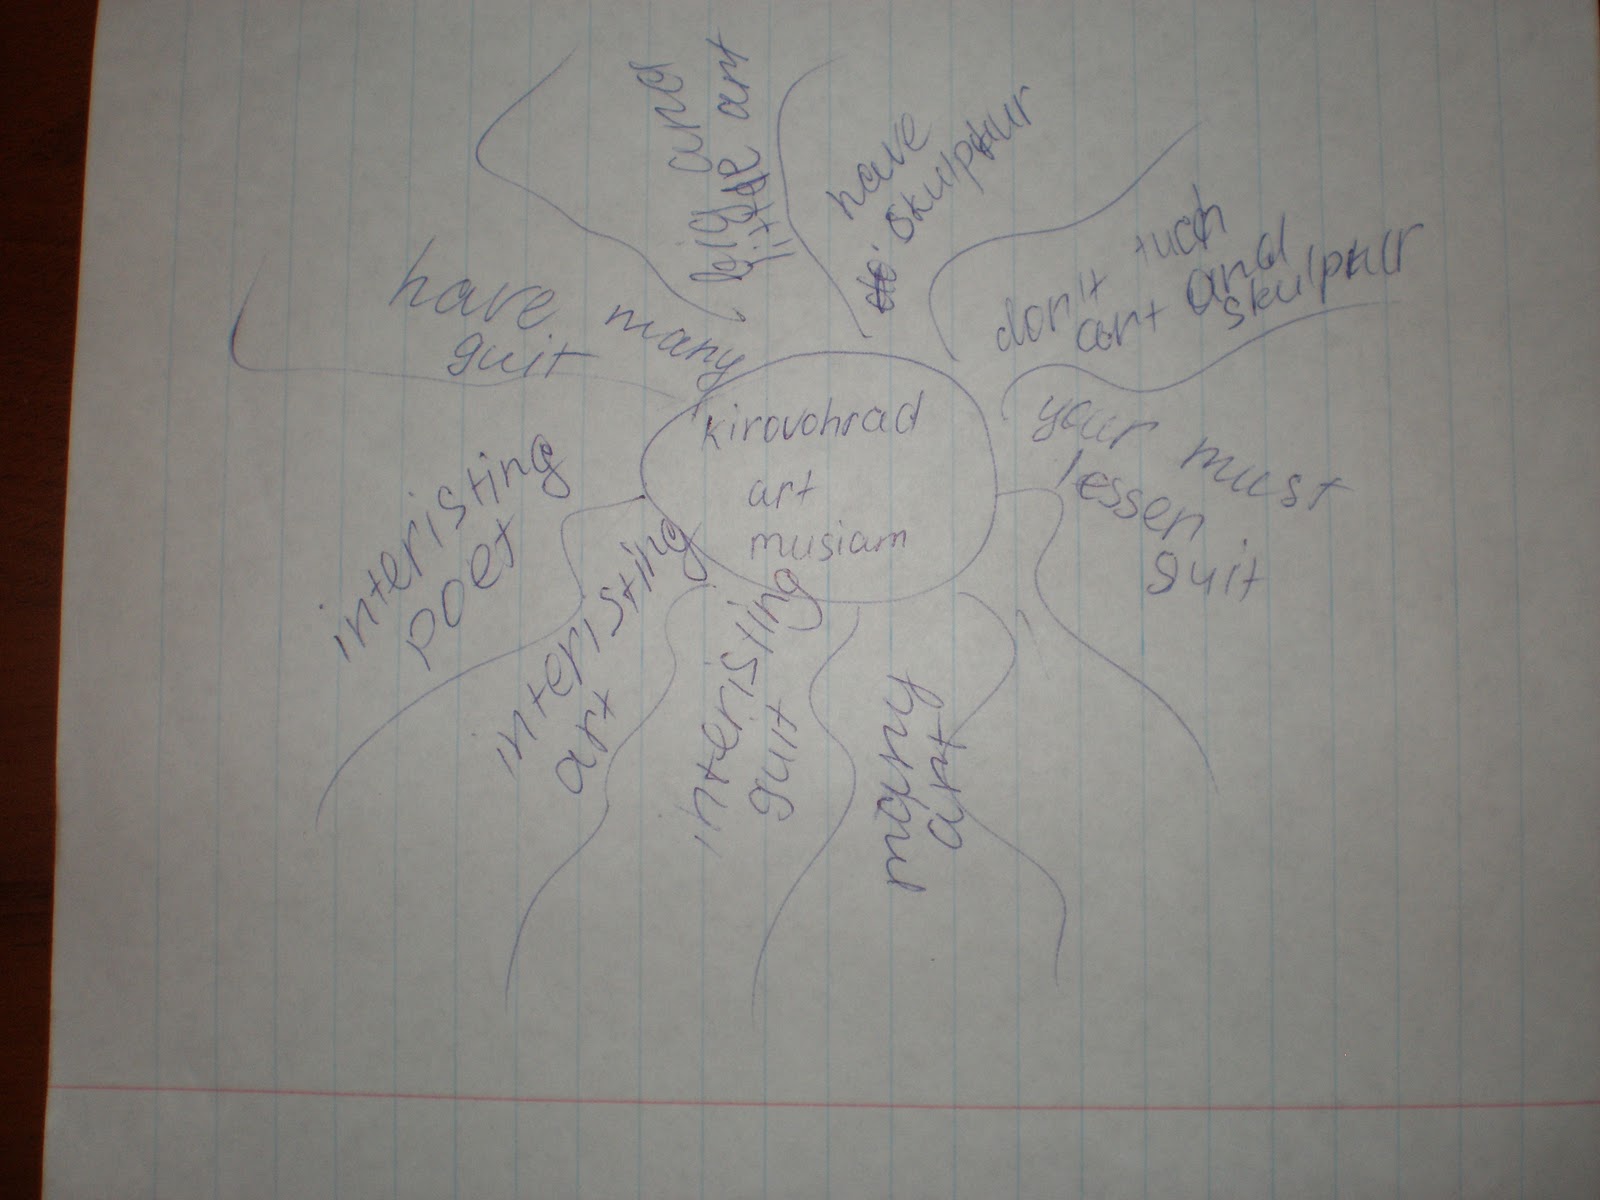 kirovohrad
art
musiam
big and
little art
have
skulptur
don't tuch
art and
skulptur
your must
lessen
guit
many
art
interisting
guit
interisting
art
interisting
poet
have many
guit